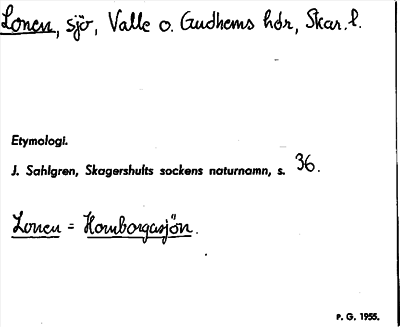 Lonen, sjö, Valle o. Gudhems hdr, Skar. l.
Etymologi.
J. Sahlgren, Skagershults sockens naturnamn, s. 36.
Lonen = Hornborgasjön.
P. G. 1955.